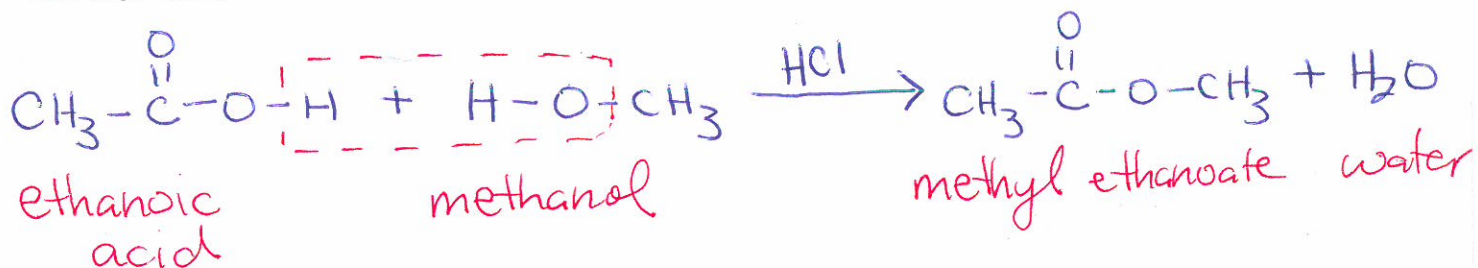 CH₃-C(=O)-O-H + H-O-CH₃ HCl → CH₃-C(=O)-O-CH₃ + H₂O
ethanoic acid methanol methyl ethanoate water